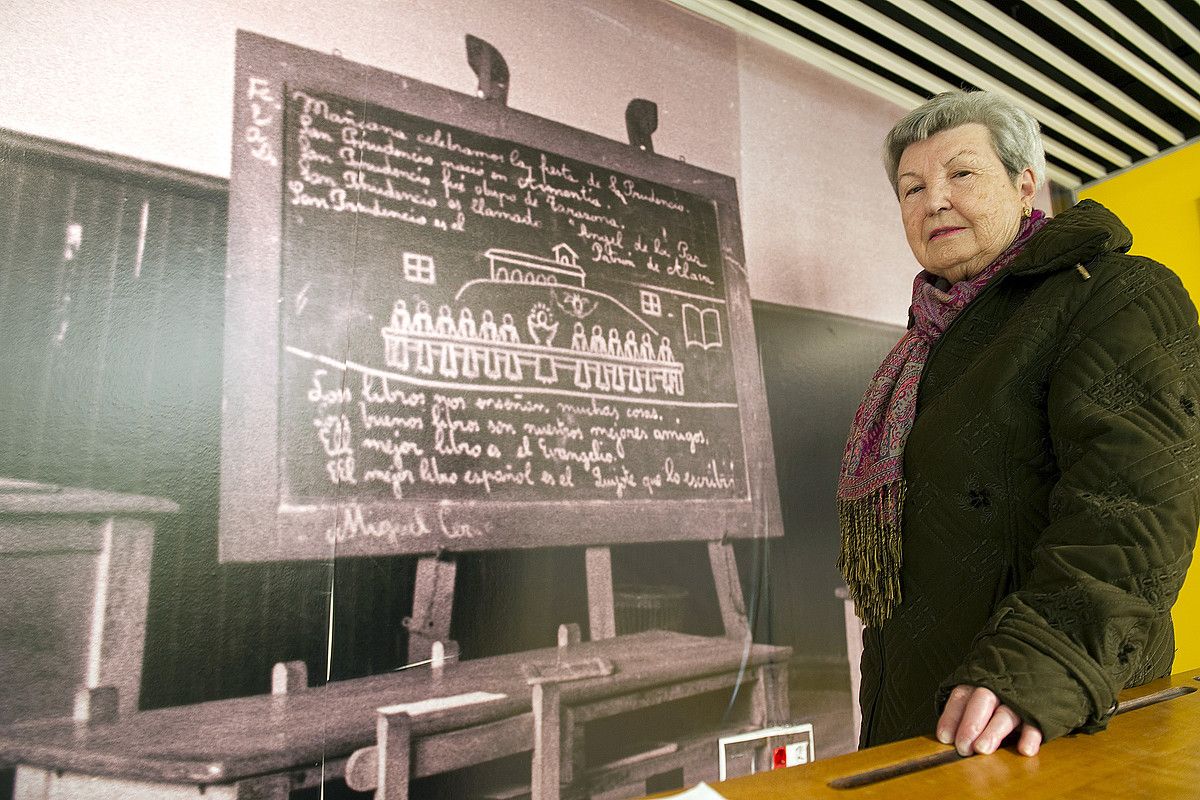 Mañana celebramos la fiesta de S. Prudencio.
San Prudencio nació en Armentia.
San Prudencio fué obispo de Tarazona.
San Prudencio es llamado "Angel de la Paz
San Prudencio es el Patrón de Alava
Los libros nos enseñan muchas cosas.
buenos libros son nuestros mejores amigos.
El mejor libro es el Evangelio.
El mejor libro español es el Quijote que lo escribió
Miguel Cer.